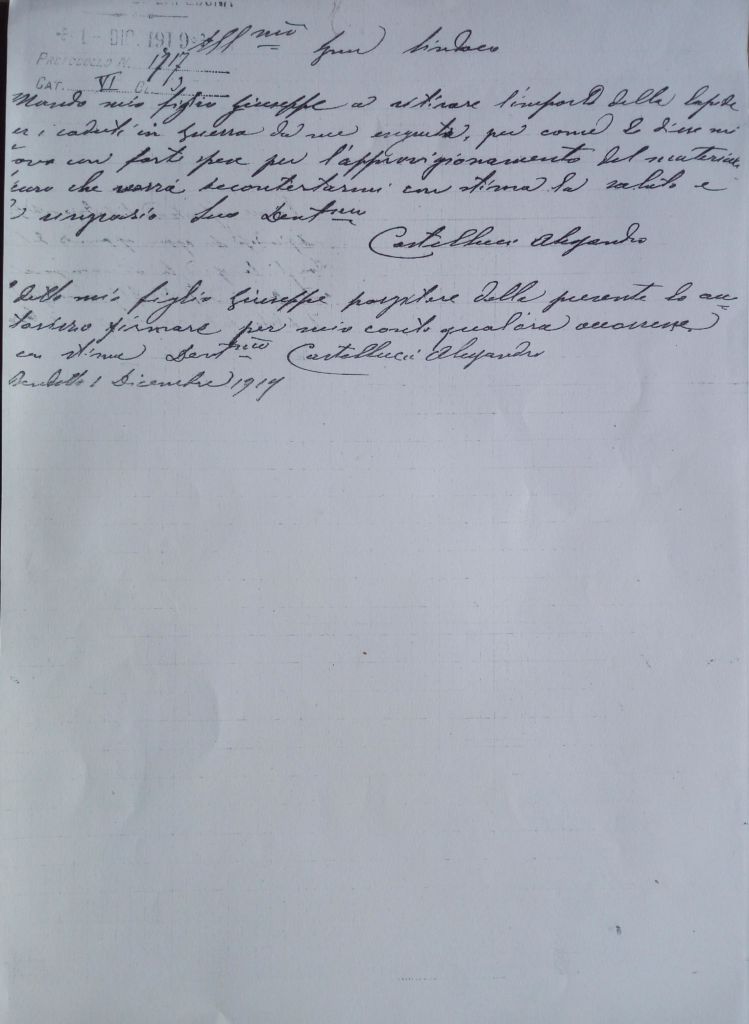 1 - DIC. 1919
Ill.mo Signor Sindaco
PROTOCOLLO N. 1717
CAT. VI CL.
Mando mio figlio Giuseppe a ritirare l'importo della lapide
i caduti in guerra da me eseguita, per come Le dissi mi
con forti spese per l'approvigionamento del materiale
che vorrà accontentarmi con stima la saluto e
ringrazio Suo Devt.mo
Castellucci Alejandro
detto mio figlio Giuseppe portatore della presente lo au-
torizzo firmare per mio conto qualora occorresse
con stima Devt.mo Castellucci Alejandro
1 Dicembre 1919